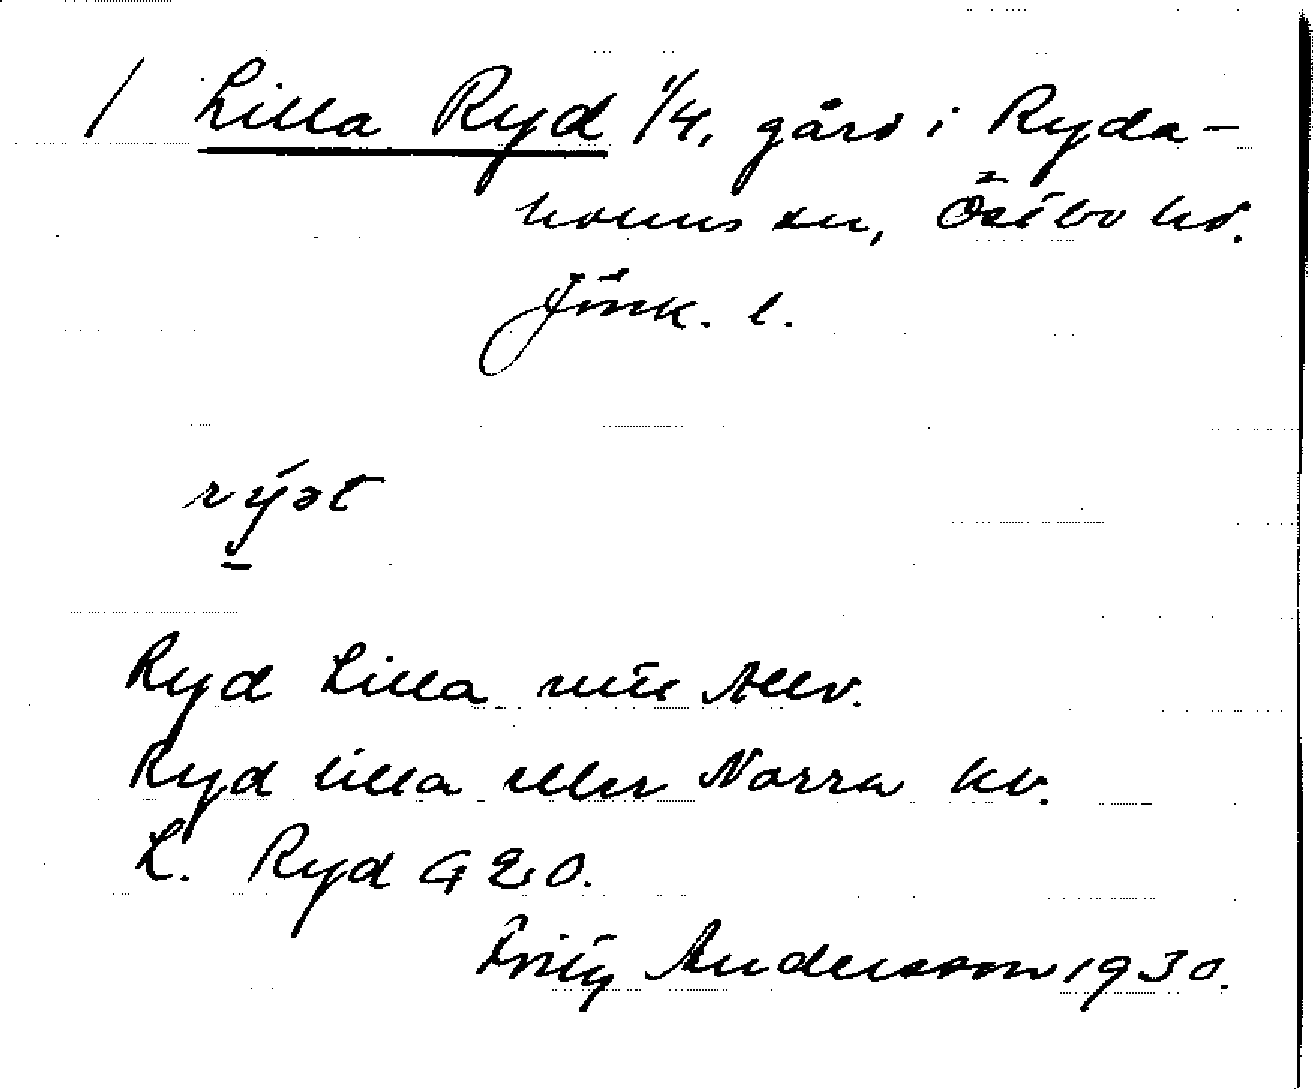 / Lilla Ryd 1/4, gård i Ryda-
holms sn, Östbo hd.
Jönk. l.
Ryd Lilla util Allv.
Ryd lilla eller Norra hv.
L. Ryd G E O.
Fritz Andersson 1930.